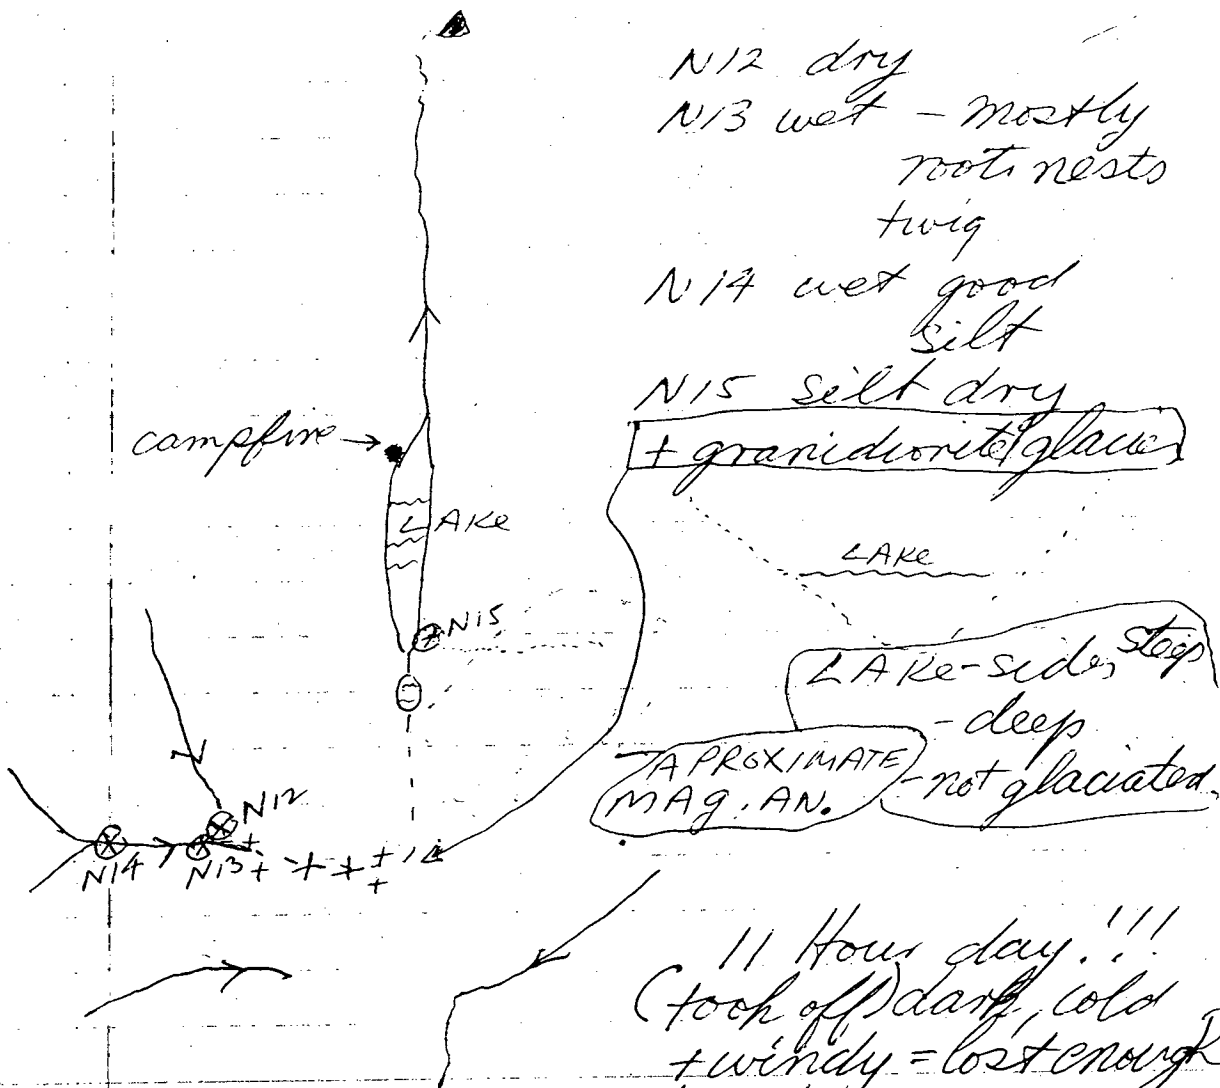 N12 dry
N13 wet - mostly
root nests
twig
N14 wet good
silt
N15 silt dry
+ granidiorite glacier
campfire →
LAKE
LAKE
N15
LAKE-sides steep
- deep
- not glaciated.
APROXIMATE
MAG. AN.
N12
N14
N13
11 Hour day!!!
(took off) dark, cold
+ windy = lost enough